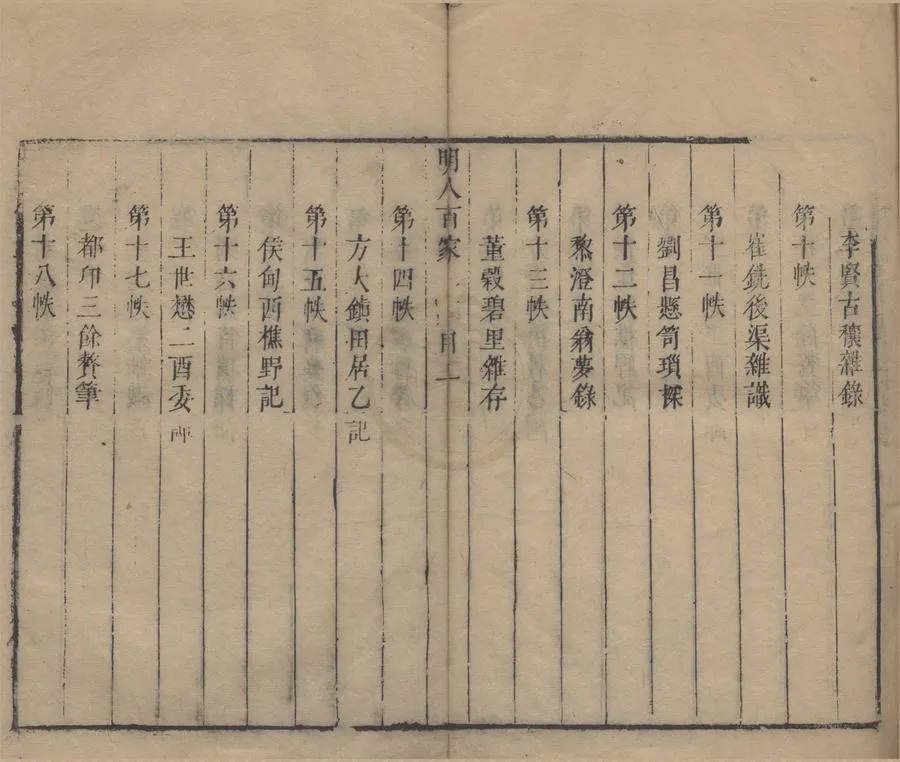 李賢古穰雜錄
第十帙
崔銑後渠雜識
第十一帙
劉昌懸笥瑣探
第十二帙
黎澄南翁夢錄
第十三帙
董穀碧里雜存
明人百家 目 二
第十四帙
方大鎮田居乙記
第十五帙
侯甸西樵野記
第十六帙
王世懋二酉委
第十七帙
都卬三餘贅筆
第十八帙